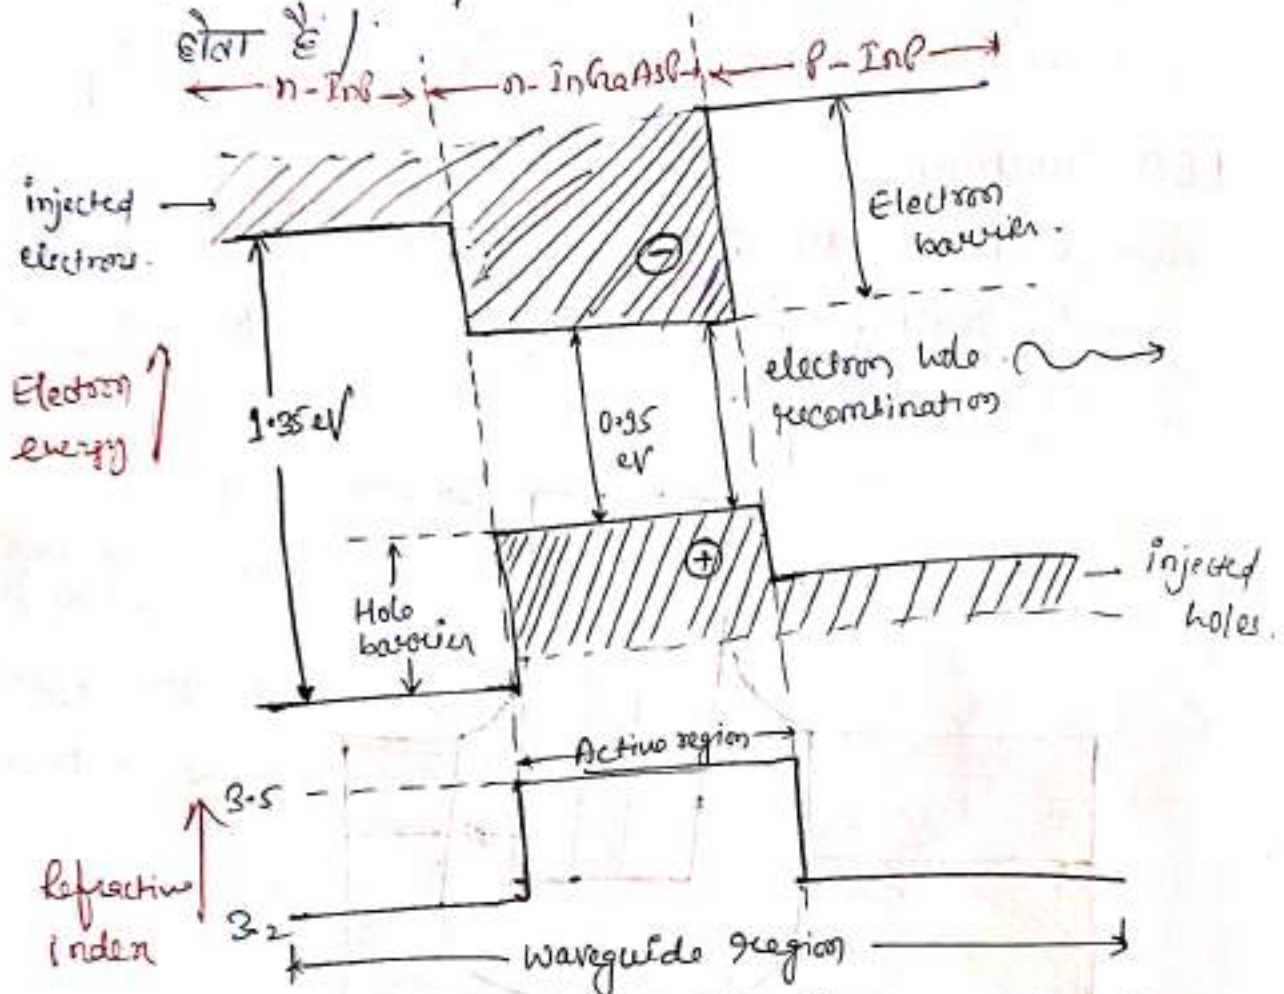 होता है /
n-InP n-InGaAsP p-InP
injected
electrons.
Electron
barrier.
Electron
energy
1.35 eV
0.95
eV
electron hole
recombination
Hole
barrier
injected
holes.
Active region
3.5
Refractive
index
3.2
waveguide region